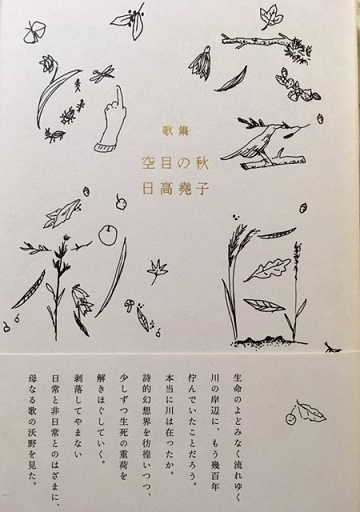 歌集
空目の秋
日高堯子
生命のよどみなく流れゆく
川の岸辺に、もう幾百年
佇んでいたことだろう。
本当に川は在ったか。
詩的幻想界を彷徨いつつ、
少しずつ生死の重荷を
解きほぐしていく。
剥落してやまない
日常と非日常とのはざまに、
母なる歌の沃野を見た。